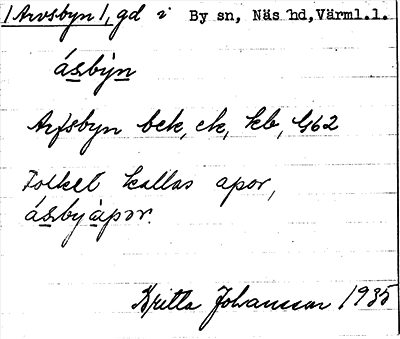 /Arvsbyn/, gd i By sn, Näs hd, Värml. l.
ásbỳn
Arfsbyn bek, ek, kb, G62
Folket kallas apor,
ásbyàpər.
Britta Johansson 1935